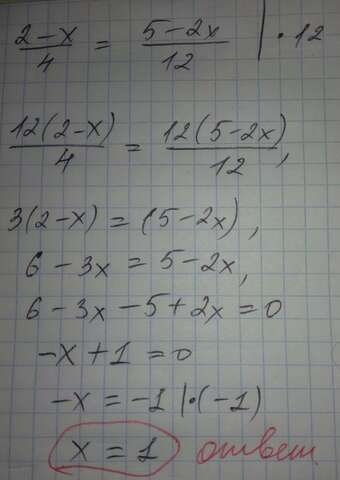 (2-x)/4 = (5-2x)/12 | · 12
12(2-x)/4 = 12(5-2x)/12,
3(2-x) = (5-2x),
6 - 3x = 5 - 2x,
6 - 3x - 5 + 2x = 0
-x + 1 = 0
-x = -1 | · (-1)
x = 1 ответ